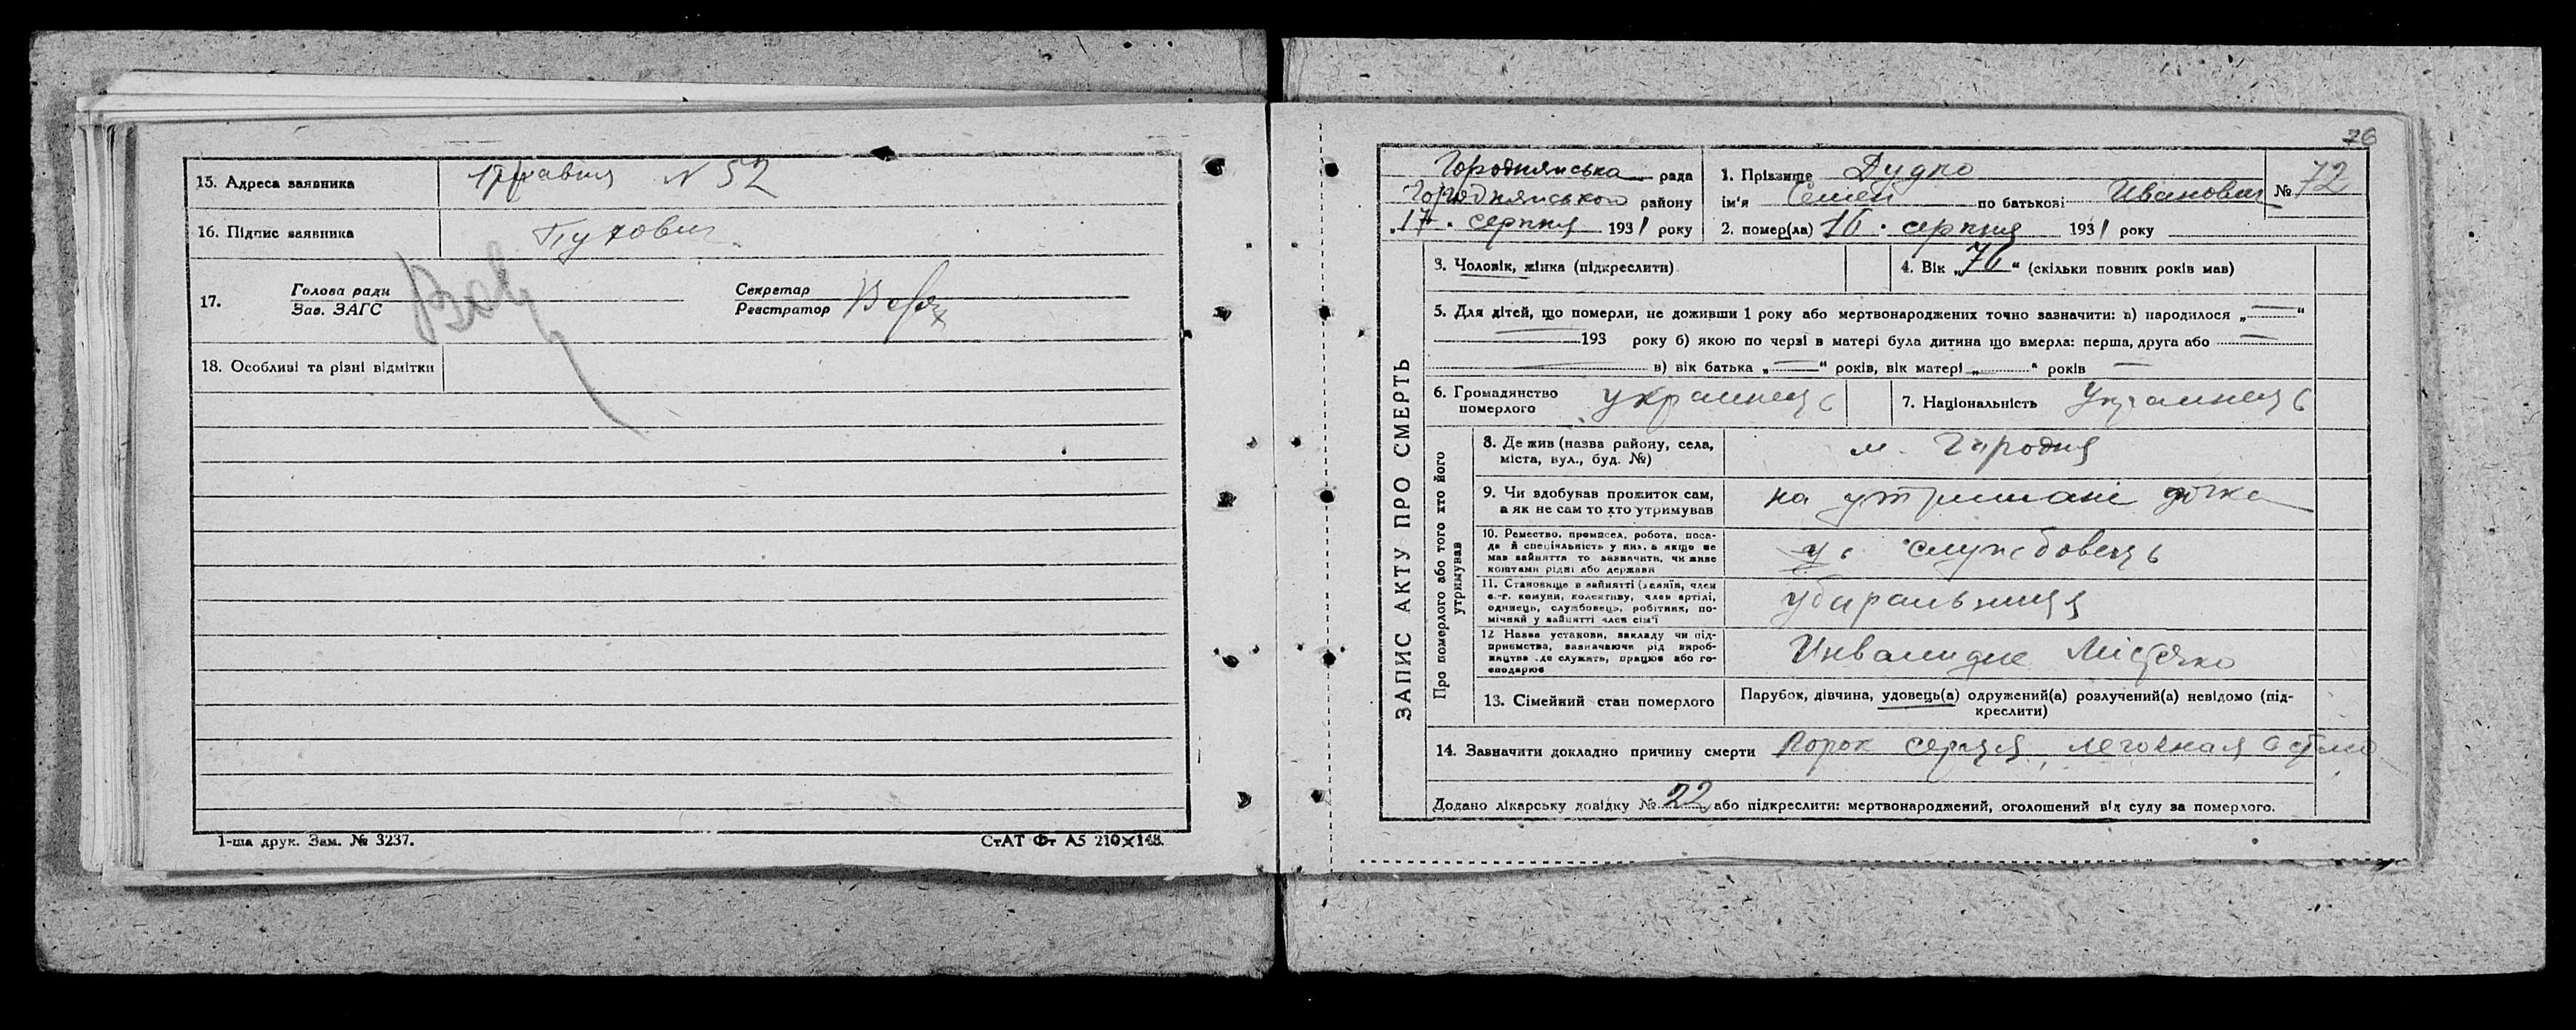 15. Адреса заявника
1 травня N 52
16. Підпис заявника
Пухович
17.
Голова ради
Зав. ЗАГС
Секретар
Реєстратор
18. Особливі та різні відмітки
1-ша друк. Зам. № 3237.
СтАТ Фт А5 210×148.
76
Городнянська рада
Городнянського району
„17" серпня 1931 року
1. Прізвище Дудко
ім'я Семен по батькові Иванович
№ 72
2. помер(ла) 16 серпня 1931 року
ЗАПИС АКТУ ПРО СМЕРТЬ
3. Чоловік, жінка (підкреслити)
4. Вік „76" (скільки повних років мав)
5. Для дітей, що померли, не доживши 1 року або мертвонароджених точно зазначити: а) народилося „—"
— 193 року б) якою по черзі в матері була дитина що вмерла: перша, друга або —
— в) вік батька „—" років, вік матері „—" років —
6. Громадянство
померлого
украинець
7. Національність Украинець
Про померлого або того хто його
утримував
8. Де жив (назва району, села,
міста, вул., буд. №)
м. Городня
9. Чи здобував прожиток сам,
а як не сам то хто утримував
на утримані дочка
10. Ремество, промисел, робота, поса-
да й спеціяльність у них, а якщо не
мав зайняття то зазначити, чи живе
коштами рідні або держави
службовець
11. Становище в зайнятті (хазяїн, член
с.-г. комуни, колективу, член артілі,
одинець, службовець, робітник, по-
мічний у зайнятті член сім'ї
убиральниця
12 Назва установи, закладу чи під-
приємства, зазначаючи рід вироб-
ництва де служить, працює або го-
сподарює
Инвалидне Містечко
13. Сімейний стан померлого
Парубок, дівчина, удовець(а) одружений(а) розлучений(а) невідомо (під-
креслити)
14. Зазначити докладно причину смерти Порок серця, легочная астма
Додано лікарську довідку № 22 або підкреслити: мертвонароджений, оголошений від суду за померлого.